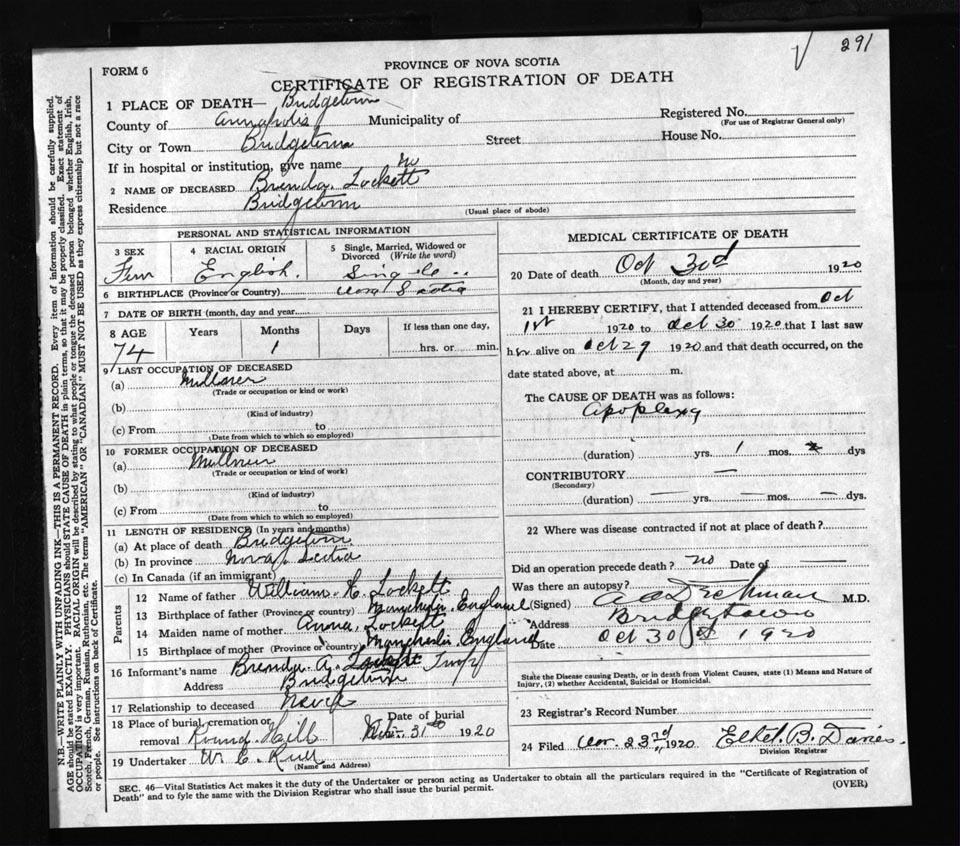 √ 291
FORM 6
PROVINCE OF NOVA SCOTIA
CERTIFICATE OF REGISTRATION OF DEATH
1 PLACE OF DEATH— Bridgetown
County of Annapolis Municipality of
Registered No.
(For use of Registrar General only)
City or Town Bridgetown Street House No.
If in hospital or institution, give name no
2 NAME OF DECEASED Brenda Lockett
Residence Bridgetown
(Usual place of abode)
PERSONAL AND STATISTICAL INFORMATION
3 SEX 4 RACIAL ORIGIN 5 Single, Married, Widowed or Divorced (Write the word)
Fem English. Single
6 BIRTHPLACE (Province or Country) Nova Scotia
7 DATE OF BIRTH (month, day and year)
8 AGE Years Months Days If less than one day,
74 1 hrs. or min.
9 LAST OCCUPATION OF DECEASED
(a) Milliner
(Trade or occupation or kind or work)
(b)
(Kind of industry)
(c) From to
(Date from which to which so employed)
10 FORMER OCCUPATION OF DECEASED
(a) Milliner
(Trade or occupation or kind of work)
(b)
(Kind of industry)
(c) From to
(Date from which to which so employed)
11 LENGTH OF RESIDENCE (In years and months)
(a) At place of death Bridgetown
(b) In province Nova Scotia
(c) In Canada (if an immigrant)
Parents
12 Name of father William Lockett
13 Birthplace of father (Province or country) England
14 Maiden name of mother Anna Lockett
15 Birthplace of mother (Province or country) Manchester England
16 Informant's name Brenda A.
Address Bridgetown
17 Relationship to deceased
18 Place of burial, cremation or removal Round Hill Date of burial 31st 1920
19 Undertaker W. C.
(Name and Address)
MEDICAL CERTIFICATE OF DEATH
20 Date of death Oct 30d 1920
(Month, day and year)
21 I HEREBY CERTIFY, that I attended deceased from Oct
1st 1920 to Oct 30 1920 that I last saw
her alive on Oct 29 1920 and that death occurred, on the
date stated above, at m.
The CAUSE OF DEATH was as follows:
Apoplexy
(duration) yrs. 1 mos. dys
CONTRIBUTORY —
(Secondary)
(duration) — yrs. — mos. — dys.
22 Where was disease contracted if not at place of death?
Did an operation precede death? no Date of —
Was there an autopsy?
(Signed) M.D.
Address Bridgetown
Date Oct 30 1920
State the Disease causing Death, or in death from Violent Causes, state (1) Means and Nature of
Injury, (2) whether Accidental, Suicidal or Homicidal.
23 Registrar's Record Number
24 Filed Nov. 23rd, 1920 Ethel B. Davies.
Division Registrar
SEC. 46—Vital Statistics Act makes it the duty of the Undertaker or person acting as Undertaker to obtain all the particulars required in the "Certificate of Registration of
Death" and to fyle the same with the Division Registrar who shall issue the burial permit.
(OVER)
N.B.—WRITE PLAINLY WITH UNFADING INK—THIS IS A PERMANENT RECORD. Every item of information should be carefully supplied.
AGE should be stated EXACTLY. PHYSICIANS should STATE CAUSE OF DEATH in plain terms, so that it may be properly classified. Exact statement of
OCCUPATION is very important. RACIAL ORIGIN will be described by stating to what people or tongue the deceased person belonged whether English, Irish,
Scotch, French, German, Russian, Ruthenian, etc. The terms "AMERICAN" OR "CANADIAN" MUST NOT BE USED as they express citizenship but not a race
or people. See instructions on back of Certificate.